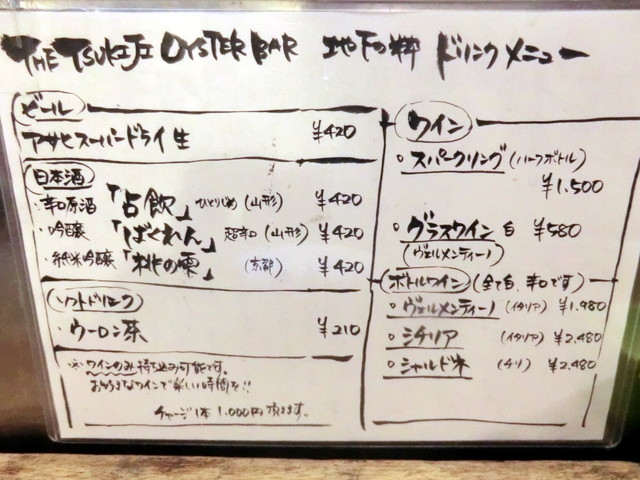 THE TSUKIJI OYSTER BAR 地下の粋 ドリンクメニュー
ビール
アサヒスーパードライ 生 ¥420
日本酒
・辛口原酒 「占飲」 ひとりじめ (山形) ¥420
・吟醸 「ばくれん」 超辛口 (山形) ¥420
・純米吟醸 「桃の雫」 (京都) ¥420
ソフトドリンク
・ウーロン茶 ¥210
※ワインのみ持ち込み可能です。
お好きなワインで楽しい時間を!!
チャージ1本 1,000円頂きます。
ワイン
・スパークリング (ハーフボトル)
¥1,500
・グラスワイン 白 ¥580
(ヴェルメンティーノ)
ボトルワイン (全て白、辛口です)
・ヴェルメンティーノ (イタリア) ¥1,980
・シチリア (イタリア) ¥2,480
・シャルドネ (チリ) ¥2,480